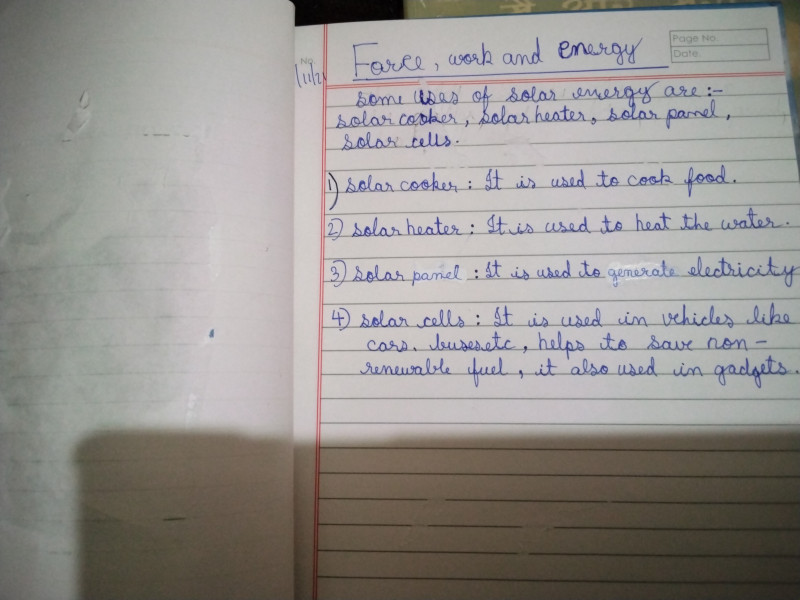 Page No.
Date.
No.
1/11/21
Force, work and energy
Some uses of solar energy are:-
solar cooker, solar heater, solar panel,
solar cells.
1) solar cooker : It is used to cook food.
2) solar heater : It is used to heat the water.
3) solar panel : It is used to generate electricity
4) solar cells : It is used in vehicles like
cars, buses etc, helps to save non-
renewable fuel, it also used in gadgets.